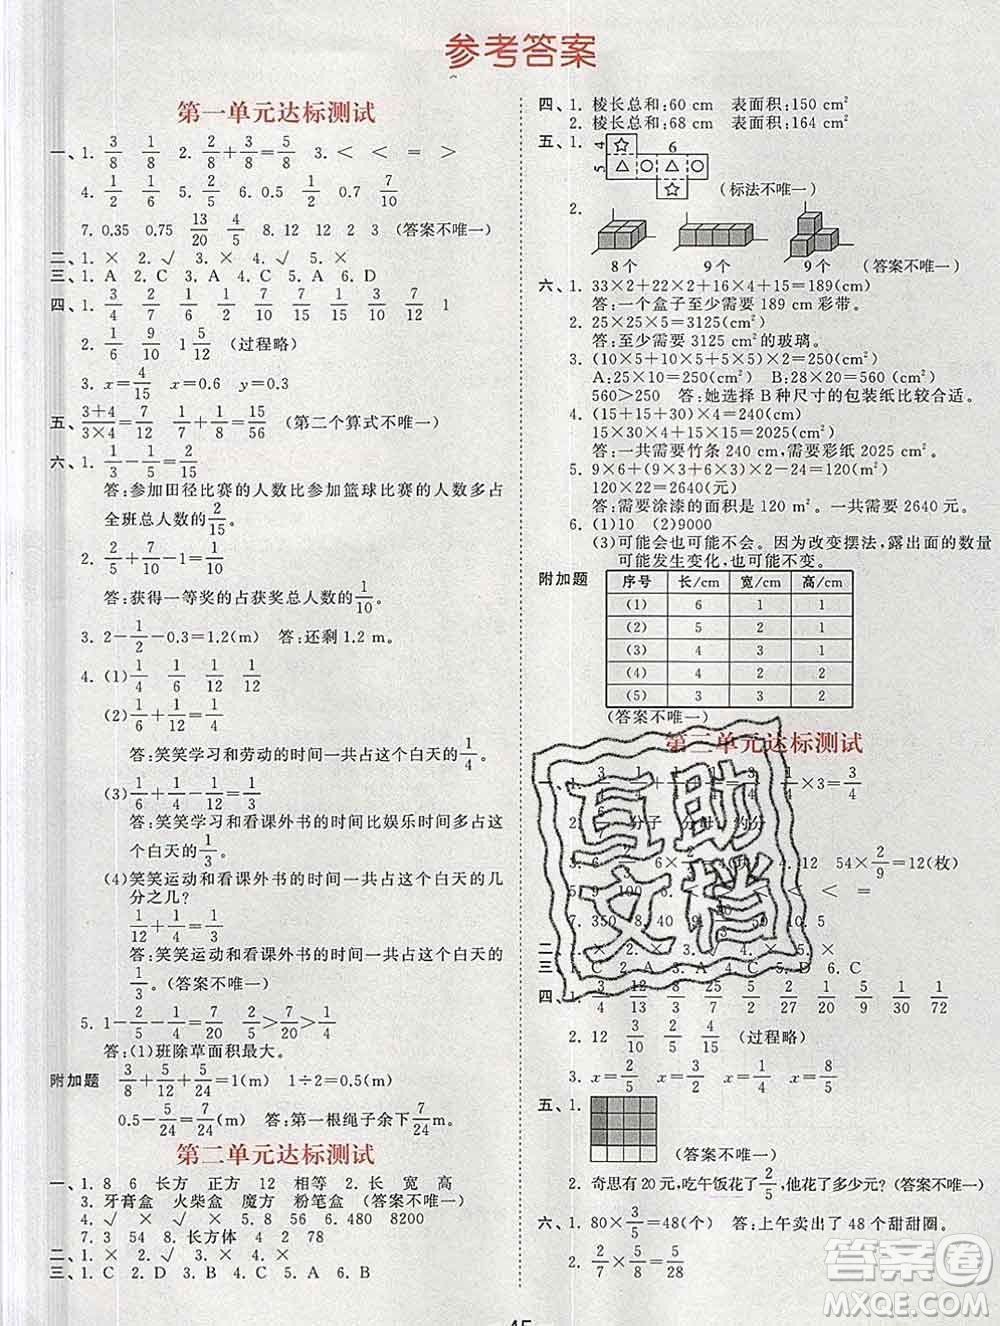 参考答案
第一单元达标测试
一、1. 3/8 1/8 2. 2/8+3/8=5/8 3. < < = >
4. 1/2 1/6 5. 2/5 6. 0.5 1/2 0.7 7/10
7. 0.35 0.75 13/20 4/5 8. 12 12 2 3 (答案不唯一)
二、1. × 2. √ 3. × 4. ×
三、1. A 2. C 3. A 4. C 5. A 6. D
四、1. 3/4 4/7 1/6 1/2 7/10 7/15 1/12 4/7 1
2. 1/6 9/10 1 5/12 (过程略)
3. x=4/15 x=0.6 y=0.3
五、(3+4)/(3×4)=7/12 1/7+1/8=15/56 (第二个算式不唯一)
六、1. 1/3-1/5=2/15
答:参加田径比赛的人数比参加篮球比赛的人数多占
全班总人数的2/15。
2. 1/2+3/5-1=1/10
答:获得一等奖的占获奖总人数的1/10。
3. 2-1/2-0.3=1.2(m) 答:还剩 1.2 m。
4. (1)1/4 1/6 1/12 1/4
(2)1/6+1/12=1/4
答:笑笑学习和劳动的时间一共占这个白天的1/4。
答:笑笑运动和看课外书的时间比娱乐时间多占这
个白天的1/3。
(4)笑笑运动和看课外书的时间一共占这个白天的几
分之几?
1/12+1/4=1/3
答:笑笑运动和看课外书的时间一共占这个白天的
1/3。(答案不唯一)
5. 1-2/5-1/4=7/20 2/5>7/20>1/4
答:(1)班除草面积最大。
附加题 3/8+5/12+5/24=1(m) 1÷2=0.5(m)
0.5-5/24=7/24(m) 答:第一根绳子余下7/24 m。
第二单元达标测试
一、1. 8 6 长方 正方 12 相等 2. 长 宽 高
3. 牙膏盒 火柴盒 魔方 粉笔盒 (答案不唯一)
4. √ × √ × 5. 8 56 6. 480 8200
7. 3 54 8. 长方体 4 2 78
二、1. × 2. √ 3. × 4. ×
三、1. C 2. D 3. A 4. C 5. A 6. B
四、1. 棱长总和:60 cm 表面积:150 cm²
2. 棱长总和:68 cm 表面积:164 cm²
五、1. 4 6
5
(标法不唯一)
2.
8 个 9 个 9 个 (答案不唯一)
六、1. 33×2+22×2+16×4+15=189(cm)
答:一个盒子至少需要 189 cm 彩带。
2. 25×25×5=3125(cm²)
答:至少需要 3125 cm² 的玻璃。
3. (10×5+10×5+5×5)×2=250(cm²)
A:25×10=250(cm²) B:28×20=560(cm²)
560>250 答:她选择 B 种尺寸的包装纸比较合适。
4. (15+15+30)×4=240(cm)
15×30×4+15×15=2025(cm²)
答:一共需要竹条 240 cm,需要彩纸 2025 cm²。
5. 9×6+(9×3+6×3)×2-24=120(m²)
120×22=2640(元)
答:需要涂漆的面积是 120 m²。一共花费 2640 元。
6. (1)10 (2)9000
(3)可能会也可能不会。因为改变摆法,露出面的数量
可能发生变化,也可能不变。
附加题 序号 长/cm 宽/cm 高/cm
(1) 6 1 1
(2) 5 2 1
(3) 4 3 1
(4) 4 2 2
(5) 3 3 2
(答案不唯一)
第三单元达标测试
×3=3/4
分子
4. 12 54×2/9=12(枚)
7. 350 8. 40 10. 5
5. × 
5. C 6. C
四、1. 3/4 4/13 8/3 25/7 5/12 2/27 1/20 5/9 1/10 1/72
2. 12 3/10 2/5 4/15 (过程略)
五、1.
(答案不唯一)
2. 奇思有 20 元,吃午饭花了2/5,他花了多少元?(答案不唯一)
六、1. 80×3/5=48(个) 答:上午卖出了 48 个甜甜圈。
2. 2/7×5/8=5/28
互助文档
答案圈
MXQE.COM